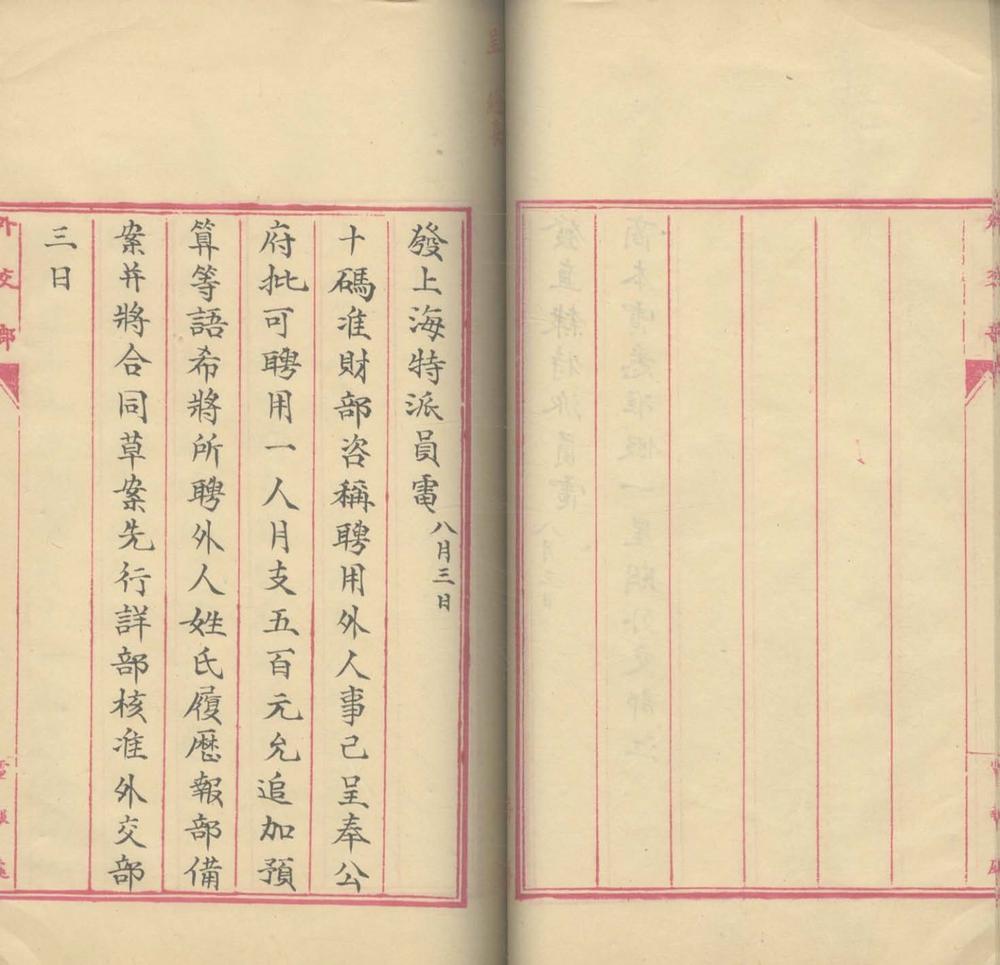 發上海特派員電 八月三日
十碼准財部咨稱聘用外人事己呈奉公
府批可聘用一人月支五百元允追加預
算等語希將所聘外人姓氏履歷報部備
案并將合同草案先行詳部核准外交部
三日
外交部